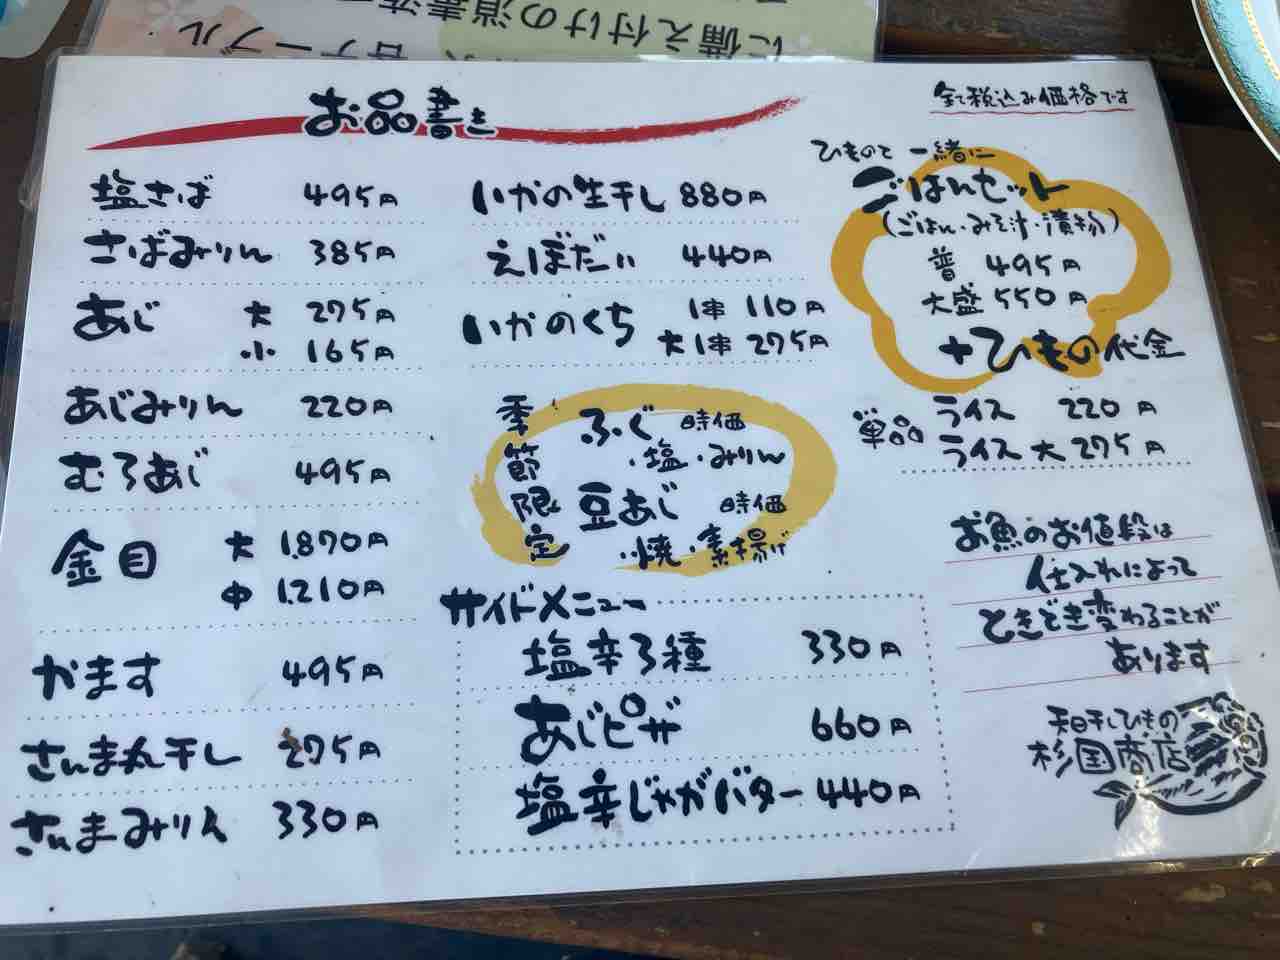 に備え付けの消毒液
各テーブル
お品書き
全て税込み価格です
塩さば 495円
さばみりん 385円
あじ 大 275円
小 165円
あじみりん 220円
むろあじ 495円
金目 大 1.870円
中 1.210円
かます 495円
さんま丸干し 275円
さんまみりん 330円
いかの生干し 880円
えぼだい 440円
いかのくち 1串 110円
大1串 275円
季節限定
ふぐ 時価
・塩・みりん
豆あじ 時価
・焼・素揚げ
サイドメニュー
塩辛3種 330円
あじピザ 660円
塩辛じゃがバター 440円
ひものと一緒に
ごはんセット
(ごはん・みそ汁・漬物)
普 495円
大盛 550円
+ひもの代金
単品 ライス 220円
ライス大 275円
お魚のお値段は
仕入れによって
ときどき変わることが
あります
天日干しひもの
杉国商店